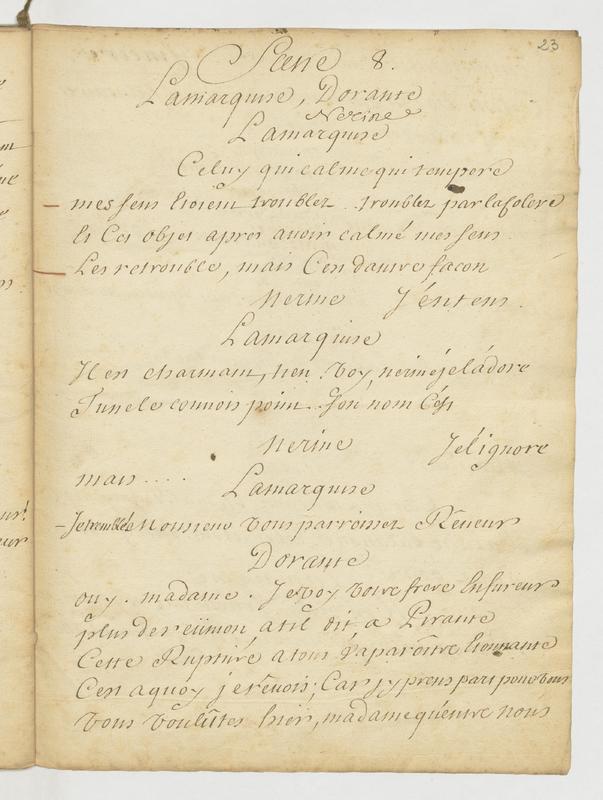 23
Scene 8.
Lamarquise, Dorante
Nerine
Lamarquise
Celuy qui calme qui tempere
mes sens Etoient troublez . troublez par la Colere
Et Cet objet apres avoir calmé mes sens
Les retrouble, mais C'en d'autre facon
Nerine J'entens.
Lamarquise
Il en charmant, voy, nerine je l'adore
Tu ne le connois point. Son nom C'est
Nerine Je l'ignore
mais ....
Lamarquise
- Je tremble Monsieur vous parroissez Rêveur
Dorante
ouy . madame . Je voy votre frere En fureur
plus de reünion a t'il dit a Pirante
Cette Rupture a tous va parôitre Etonnante
C'en a quoy je rêvois; Car j'y prens part pour vous
Vous voulûtes hier, madame qu'entre nous